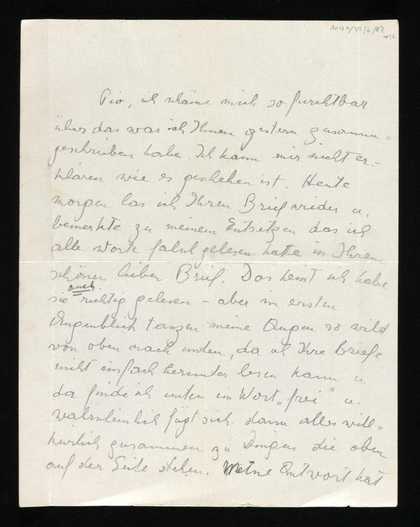 Pio, ich schäme mich so furchtbar
über das was ich Ihnen gestern zusammen-
geschrieben habe. Ich kann mir nicht er-
klären wie es geschehen ist. Heute
morgen las ich Ihren Brief wieder u.
bemerkte zu meinem Entsetzen das ich
alle worte falsch gelesen hatte in Ihrem
schönen lieben Brief. Das heist ich habe
sie auch richtig gelesen – aber im ersten
Augenblick tanzen meine Augen so wild
von oben nach unten, da ich Ihre Briefe
nicht einfach herunter lesen kann u.
da finde ich unten ein Wort „frei" u.
wahrscheinlich fügt sich dann alles will-
kürlich zusammen zu Dingen die oben
auf der Seite stehen. Meine Antwort hat